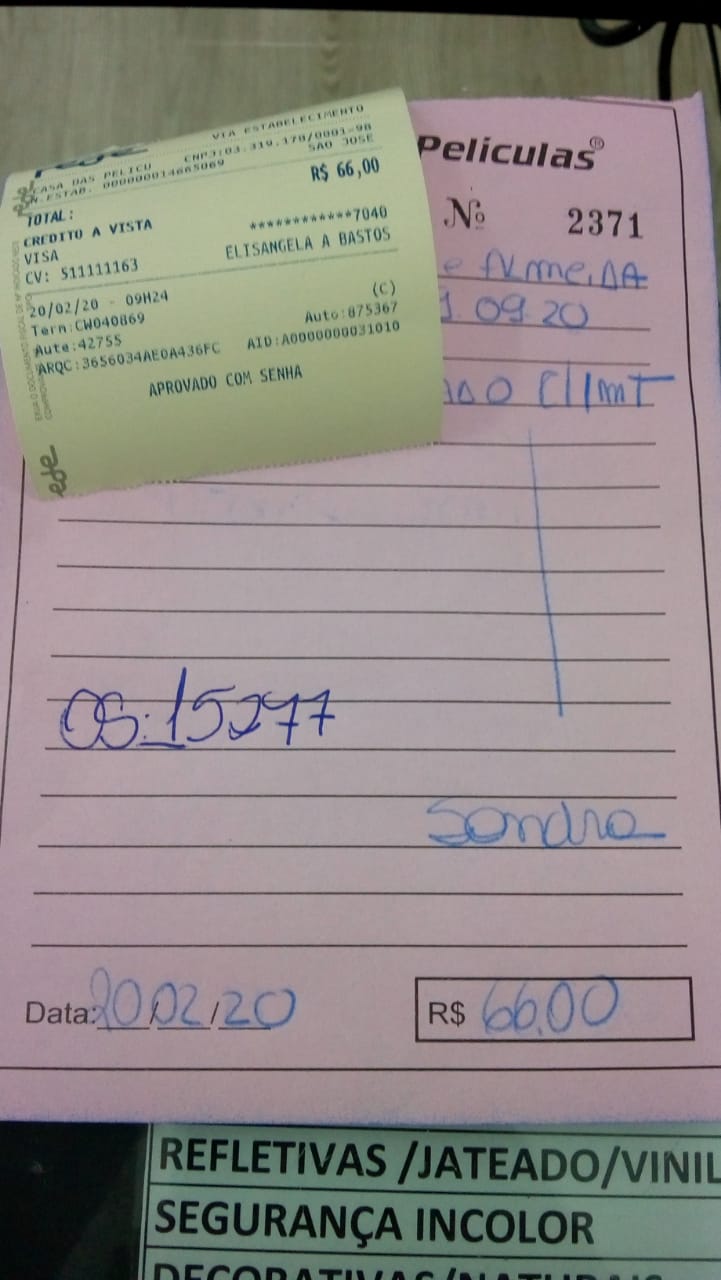 rede
VIA ESTABELECIMENTO
CASA DAS PELICU CNPJ:03.319.178/0001-98
N.ESTAB. 000000014665069 SAO JOSE
TOTAL: R$ 66,00
CREDITO A VISTA
VISA ************7040
CV: 511111163 ELISANGELA A BASTOS
20/02/20 - 09H24
Term:CW040869 (C)
Aute:42755 Auto:875367
ARQC:3656034AE0A436FC AID:A0000000031010
APROVADO COM SENHA
Películas®
Nº 2371
e Almeida
.09.20
OS:15277
Sandra
Data: 20/02/20 R$ 66,00
REFLETIVAS /JATEADO/VINIL
SEGURANÇA INCOLOR